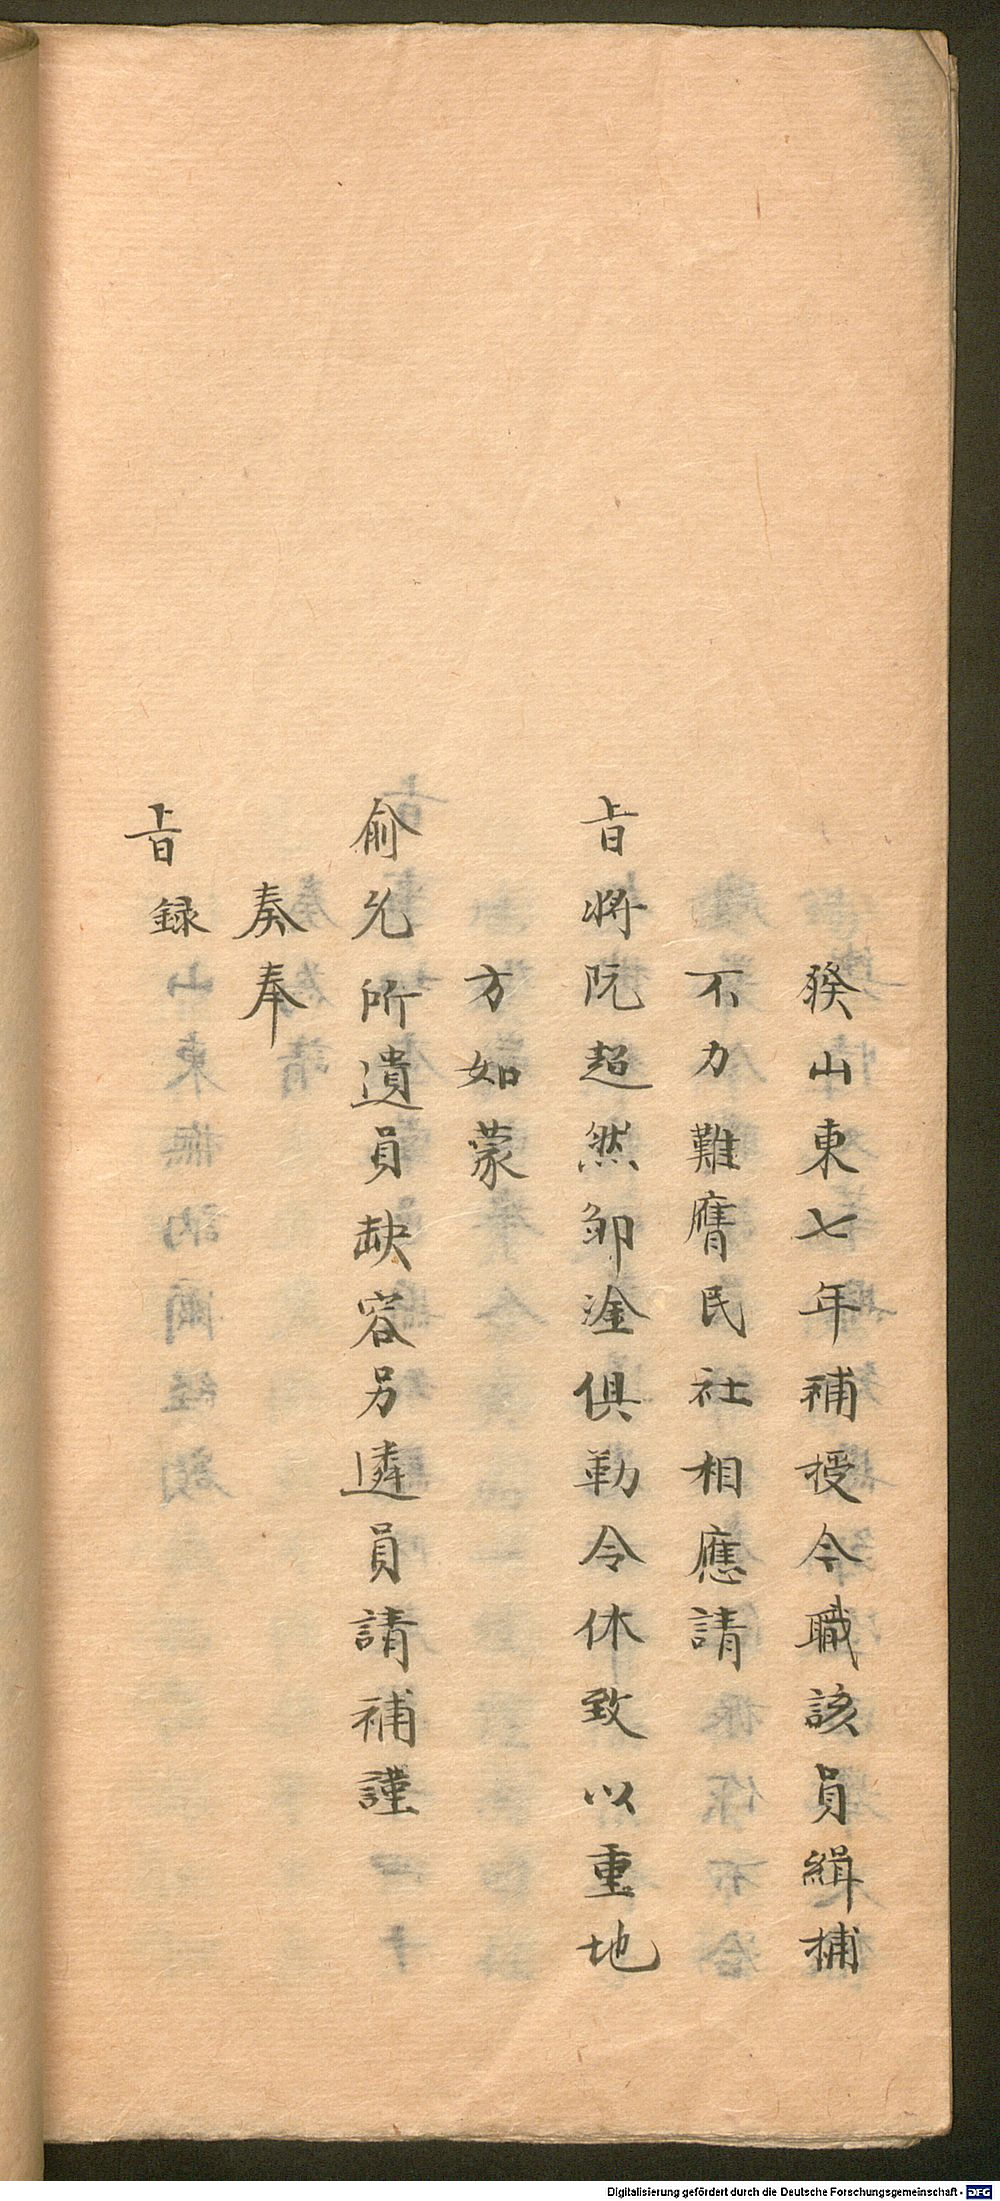 發山東七年補授今職該員緝捕
不力難膺民社相應請
旨將阮超然鄒淦俱勒令休致以重地
方如蒙
俞允所遺員缺容另遴員請補謹
奏奉
旨録
Digitalisierung gefördert durch die Deutsche Forschungsgemeinschaft - DFG